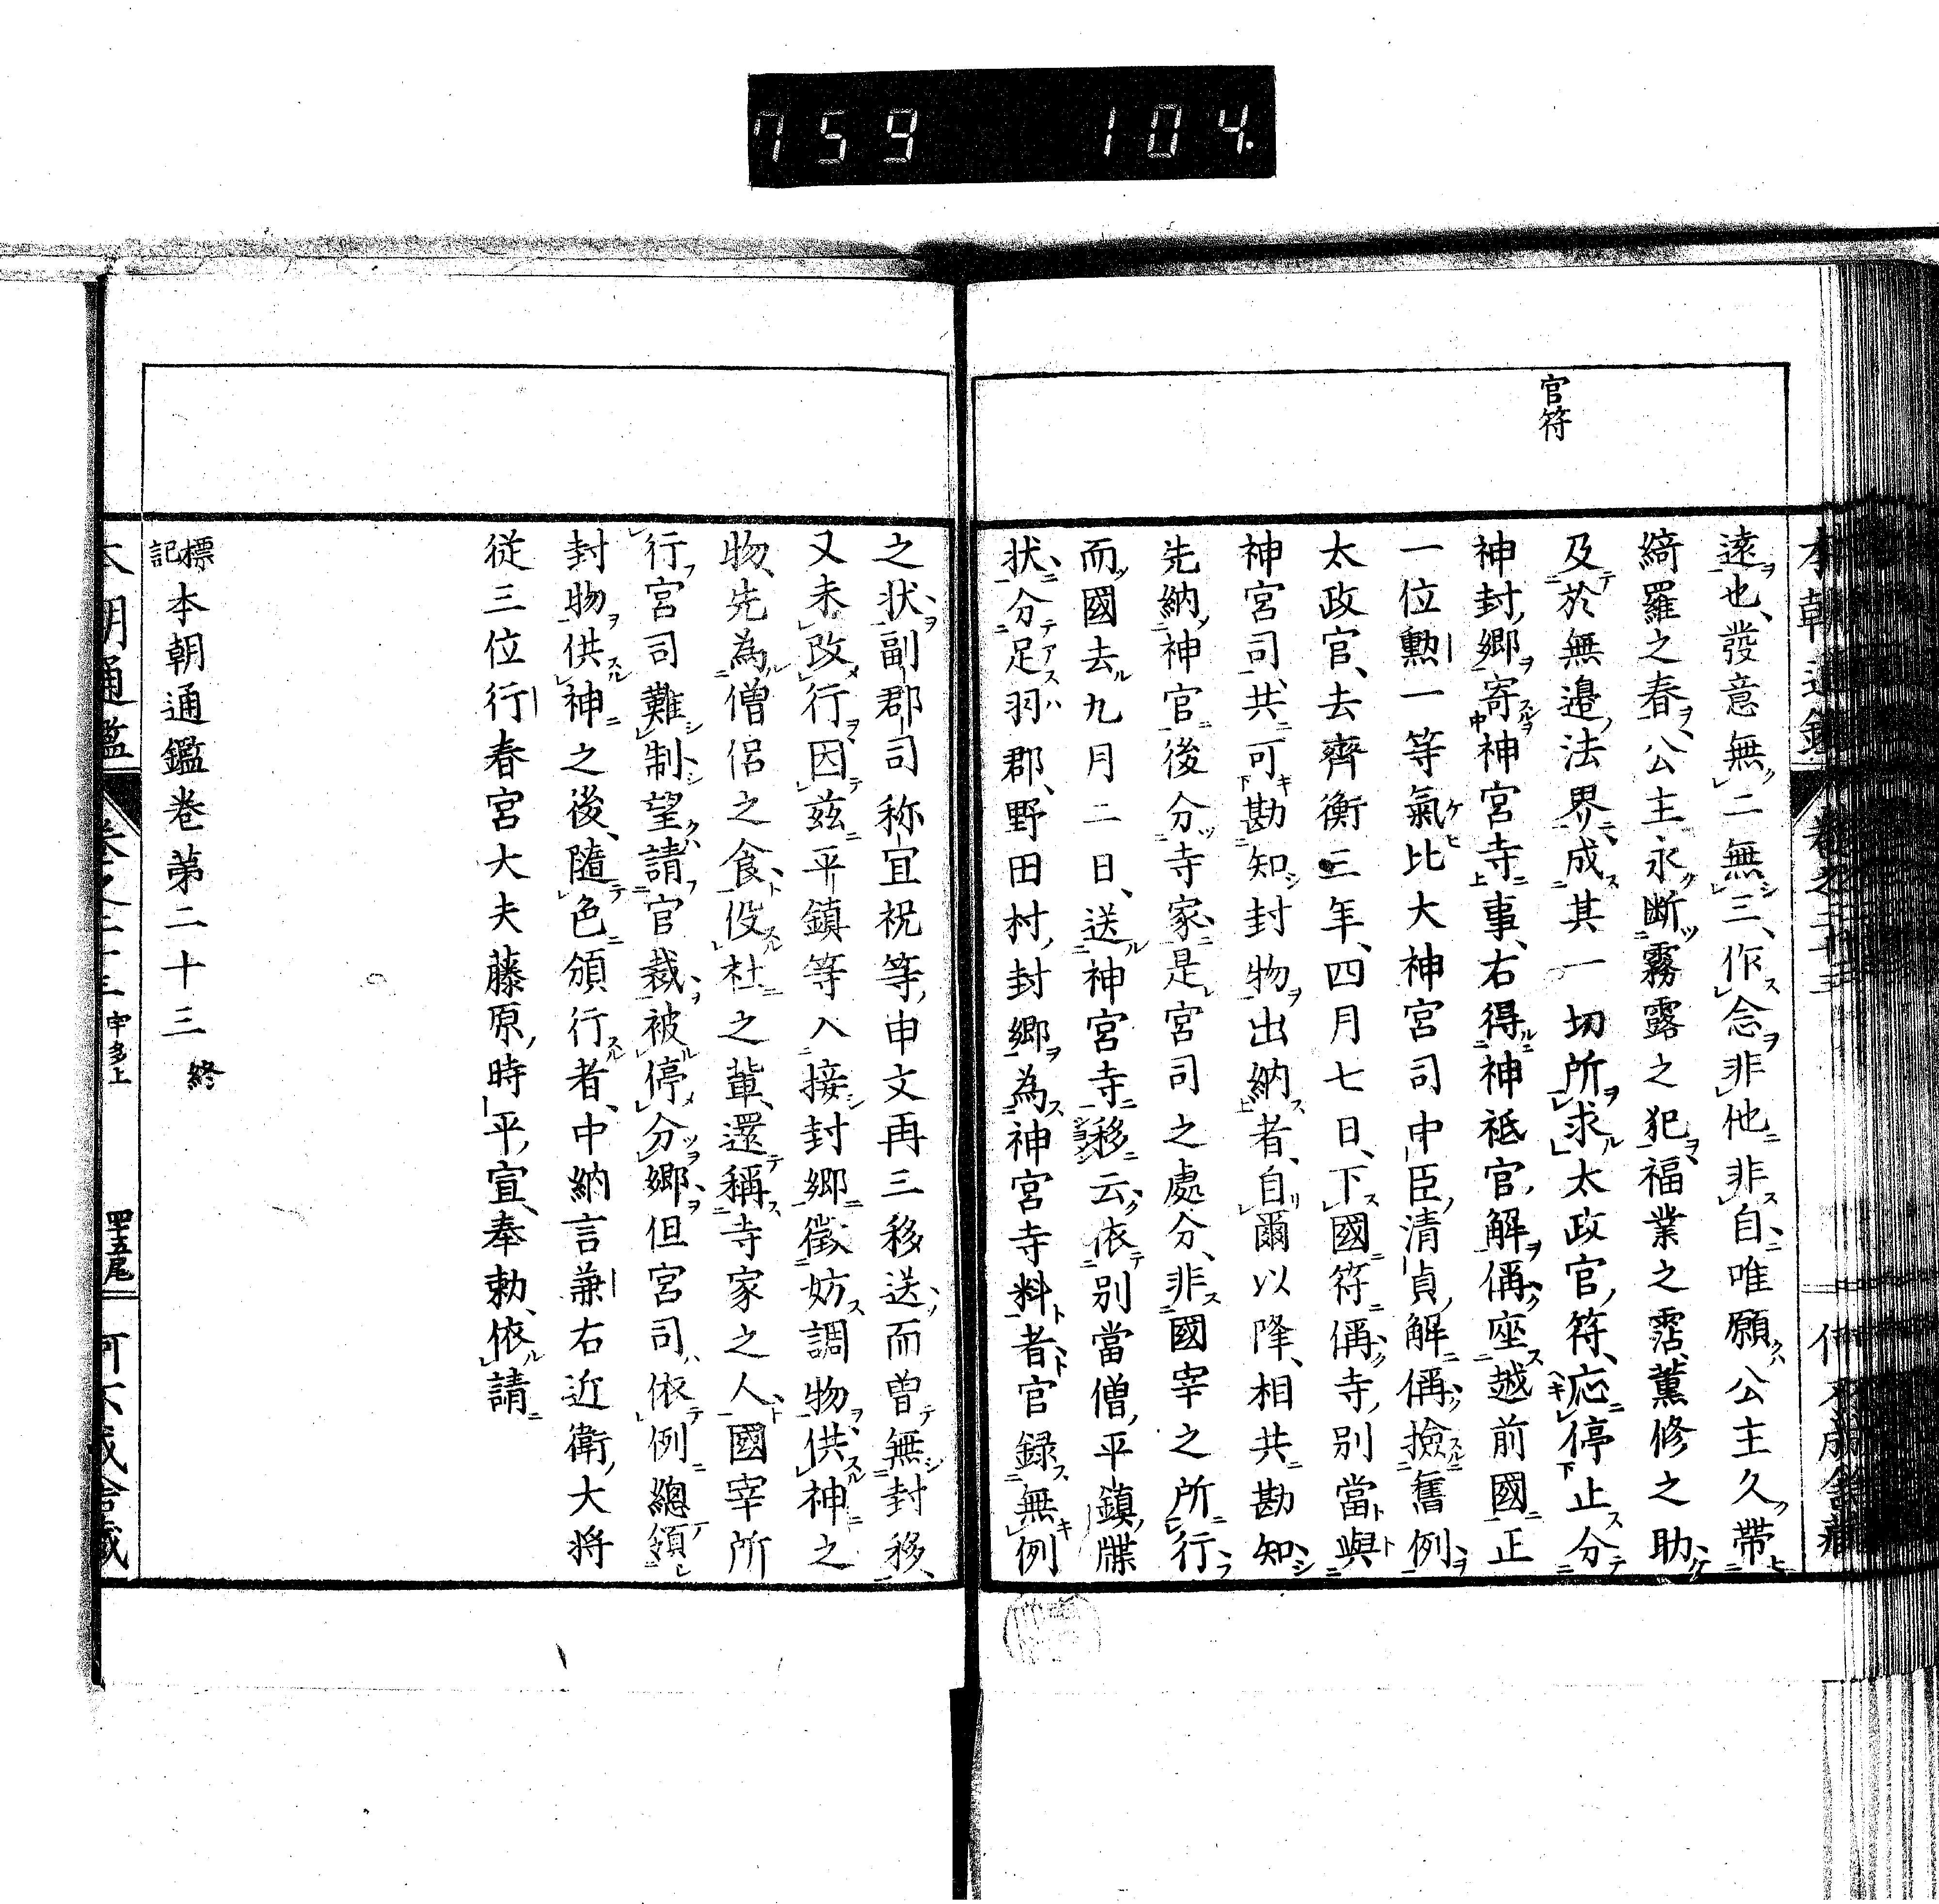 759 104.
官符
遠也、發意無二無三、作念非他非自唯願公主久帶
綺羅之春、公主永断霧露之犯、福業之霑、薫修之助、
及於無邉法界、成其一切所求太政官符、応停止分
神封郷寄神宮寺事、右得神祇官解偁座越前國正
一位勲一等氣比大神宮司中臣清貞解偁撿舊例
太政官、去齊衡三年、四月七日、下國符偁寺別當與
神宮司、共可勘知封物出納者、自爾以降、相共勘知
先納神官後分寺家、是宮司之處分、非國宰之所行
而國去九月二日、送神宮寺移云、依別當僧平鎮牒
状、分足羽郡、野田村、封郷為神宮寺料者、官録無例
之状、副郡司称宜祝等、申文再三移送、而曽無封移、
又未改行、因茲平鎮等入接封郷徴妨調物、供神之
物、先為僧侶之食、役社之輩、還稱寺家之人、國宰所
行宮司難制望請官裁、被停分郷、但宮司、依例總領
封物供神之後、隨色頒行者、中納言兼右近衛大将
従三位行春宮大夫藤原時平、宣、奉勅、依請
標記 本朝通鑑巻第二十三 終